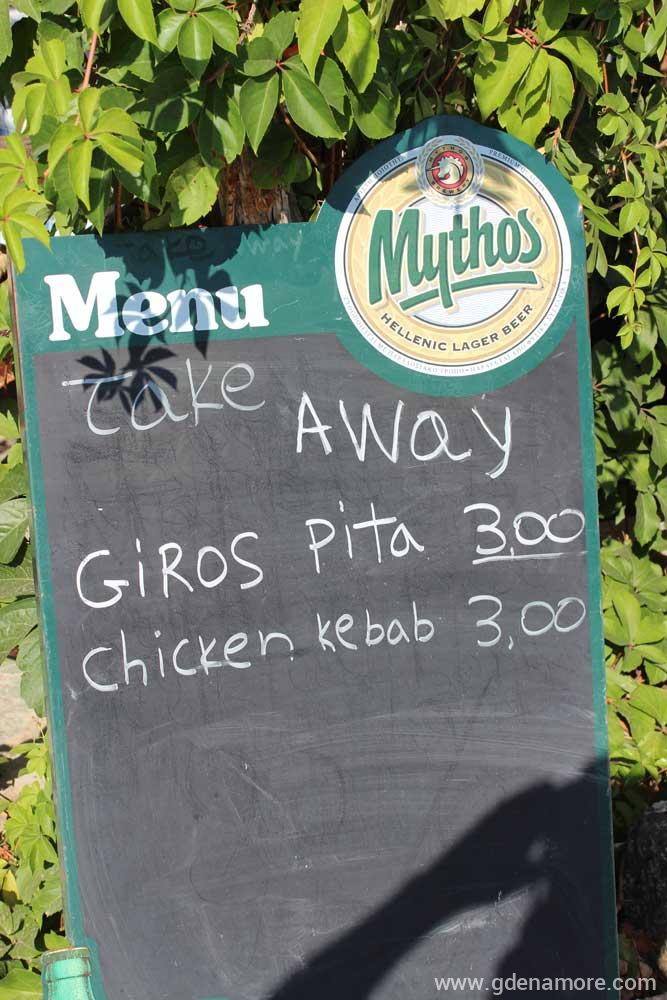 Take Away
Menu
Mythos
HELLENIC LAGER BEER
Take
AWAY
GiROS Pita 3,00
chicken kebab 3,00
www.gdenamore.com